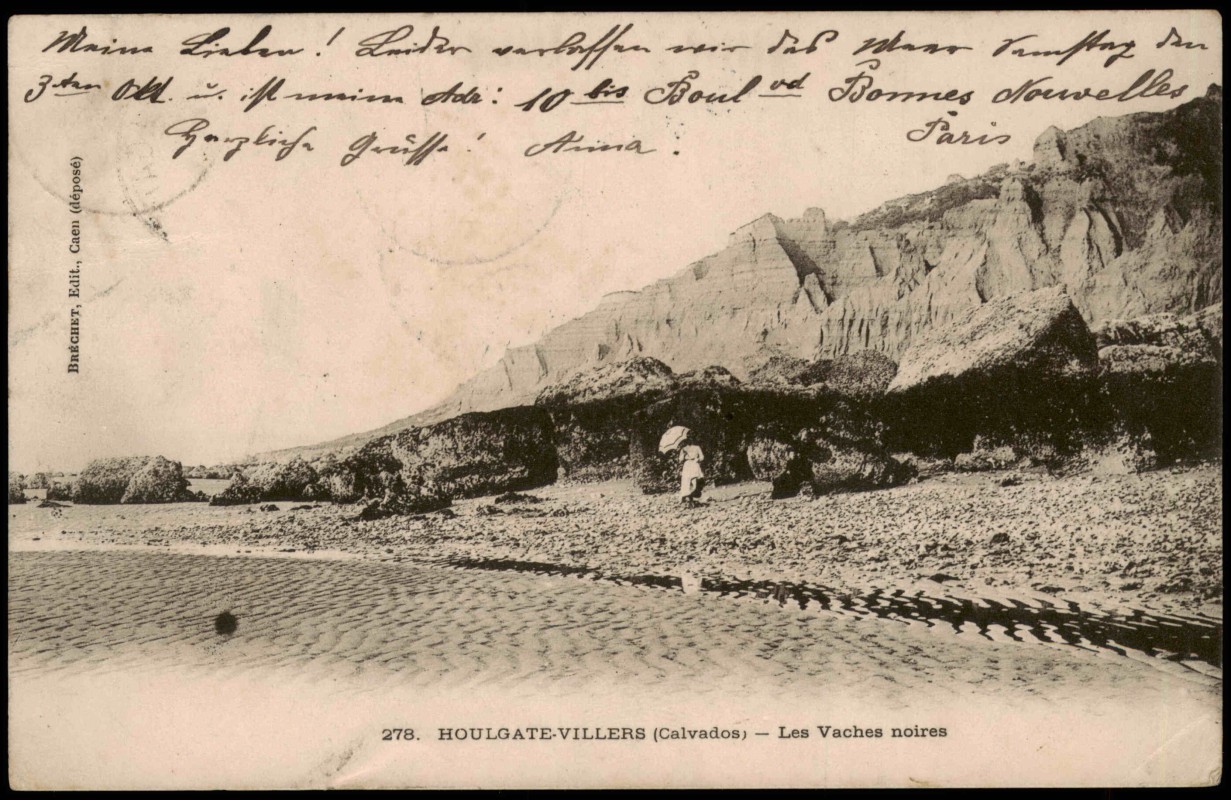 Meine Lieben! Leider verlassen wir das Meer Samstag den
3ten Okt. u. ist meine Adr: 10 bis Boul vd Bonnes Nouvelles
Paris
Herzliche Grüsse! Anna.
BRÉCHET, Edit., Caen (déposé)
278. HOULGATE-VILLERS (Calvados) — Les Vaches noires